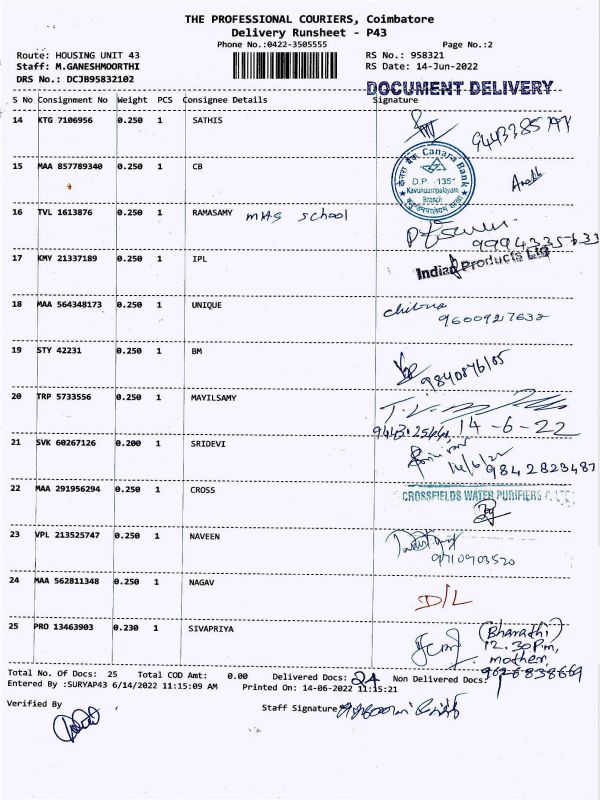 THE PROFESSIONAL COURIERS, Coimbatore
Delivery Runsheet - P43
Phone No.:0422-3505555
Page No.:2
Route: HOUSING UNIT 43
RS No.: 958321
Staff: M.GANESHMOORTHI
RS Date: 14-Jun-2022
DRS No.: DCJB95832102
DOCUMENT DELIVERY
S No Consignment No Weight PCS Consignee Details Signature
14 KTG 7106956 0.250 1 SATHIS
15 MAA 857789340 0.250 1 CB
केनरा बैंक Canara Bank
D.P. -1351
Kavundampalayam
Branch
16 TVL 1613876 0.250 1 RAMASAMY MAS School
9994335633
17 KMY 21337189 0.250 1 IPL
Indian Products Ltd
18 MAA 564348173 0.250 1 UNIQUE
9600927632
19 STY 42231 0.250 1 BM
20 TRP 5733556 0.250 1 MAYILSAMY
14-6-22
21 SVK 60267126 0.200 1 SRIDEVI
14/6/22
9842823487
22 MAA 291956294 0.250 1 CROSS
CROSSFIELDS WATER PURIFIERS P. LTD
23 VPL 213525747 0.250 1 NAVEEN
9710903520
24 MAA 562811348 0.250 1 NAGAV
D/L
25 PRO 13463903 0.230 1 SIVAPRIYA
(Bharathi)
12.30pm,
mother,
9626838669
Total No. Of Docs: 25 Total COD Amt: 0.00 Delivered Docs: 24 Non Delivered Docs: 1
Entered By :SURYAP43 6/14/2022 11:15:09 AM Printed On: 14-06-2022 11:15:21
Verified By
Staff Signature